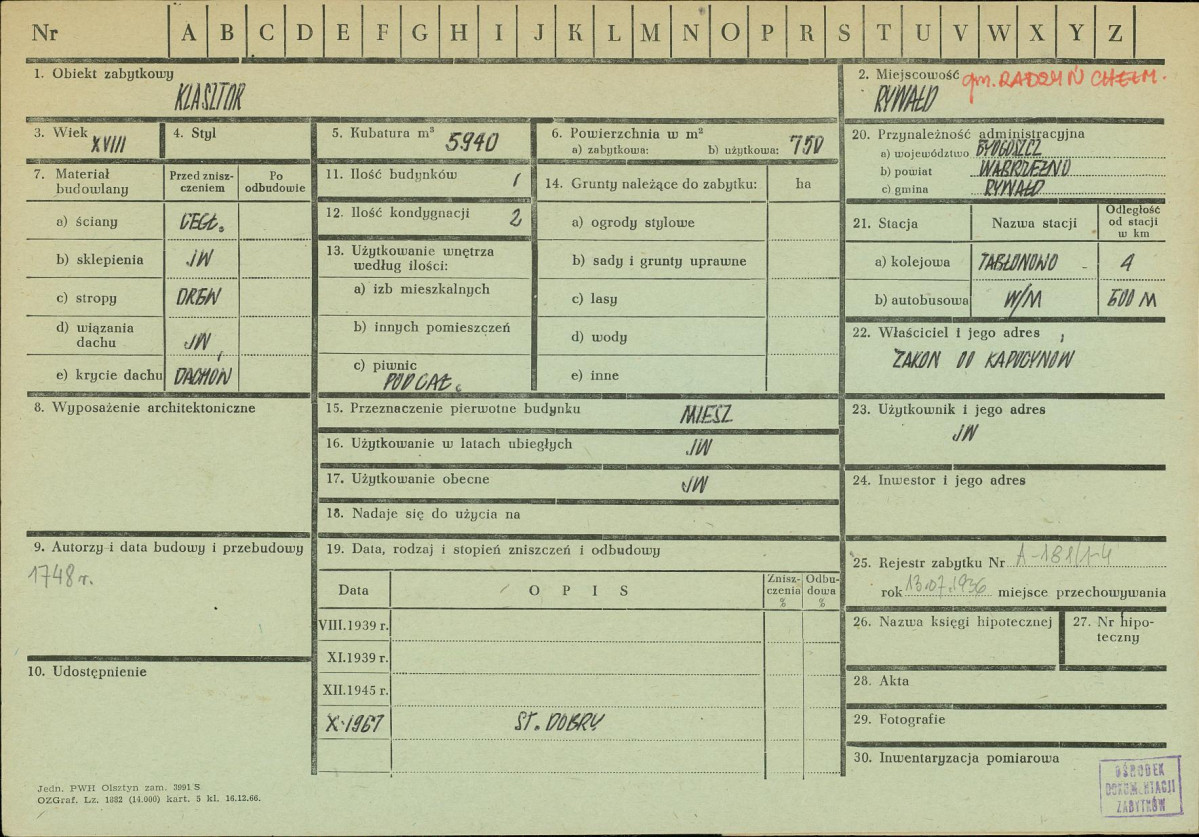 Nr A B C D E F G H I J K L M N O P R S T U V W X Y Z
1. Obiekt zabytkowy
KLASZTOR
2. Miejscowość gm. RADZYŃ CHEŁM.
RYWAŁD
3. Wiek
XVIII
4. Styl
5. Kubatura m³ 5940
6. Powierzchnia w m²
a) zabytkowa: b) użytkowa: 750
7. Materiał budowlany
Przed zniszczeniem
Po odbudowie
a) ściany CEGŁ.
b) sklepienia JW
c) stropy DREW
d) wiązania dachu JW
e) krycie dachu DACHÓW
8. Wyposażenie architektoniczne
9. Autorzy i data budowy i przebudowy
1748 r.
10. Udostępnienie
11. Ilość budynków 1
12. Ilość kondygnacji 2
13. Użytkowanie wnętrza
według ilości:
a) izb mieszkalnych
b) innych pomieszczeń
c) piwnic
POD CAŁ.
14. Grunty należące do zabytku: ha
a) ogrody stylowe
b) sady i grunty uprawne
c) lasy
d) wody
e) inne
15. Przeznaczenie pierwotne budynku MIESZ
16. Użytkowanie w latach ubiegłych JW
17. Użytkowanie obecne JW
18. Nadaje się do użycia na
19. Data, rodzaj i stopień zniszczeń i odbudowy
Data OPIS Zniszczenia % Odbudowa %
VIII.1939 r.
XI.1939 r.
XII.1945 r.
X-1967 ST. DOBRY
20. Przynależność administracyjna
a) województwo BYDGOSZCZ
b) powiat WĄBRZEŹNO
c) gmina RYWAŁD
21. Stacja Nazwa stacji Odległość od stacji w km
a) kolejowa JABŁONOWO - 4
b) autobusowa W/M 500 M
22. Właściciel i jego adres
ZAKON OO KAPUCYNÓW
23. Użytkownik i jego adres
JW
24. Inwestor i jego adres
25. Rejestr zabytku Nr A-181/1-4
rok 13.07.1936 miejsce przechowywania
26. Nazwa księgi hipotecznej
27. Nr hipoteczny
28. Akta
29. Fotografie
30. Inwentaryzacja pomiarowa
OŚRODEK
DOKUMENTACJI
ZABYTKÓW
Jedn. PWH Olsztyn zam. 3991 S
OZGraf. Lz. 1882 (14.000) kart. 5 kl. 16.12.66.